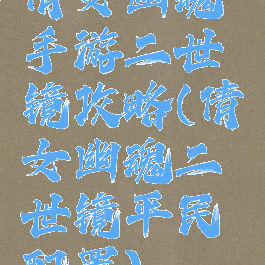 倩女幽魂
手游二世
镜攻略(倩
女幽魂二
世镜平民
配置)